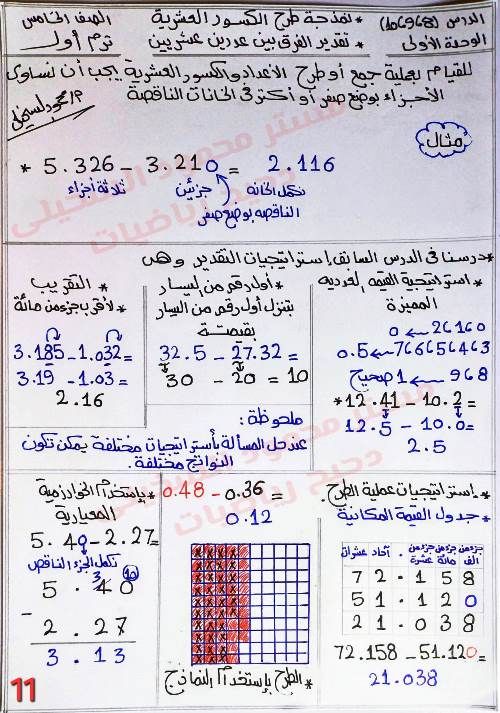 الدرس (8و9و10)
الوحدة الأولى
* نمذجة طرح الكسور العشرية
* تقدير الفرق بين عددين عشريين
الصف الخامس
ترم أول
للقيام بعملية جمع أو طرح الأعداد والكسور العشرية يجب أن تتساوى
الأجزاء بوضع صفر أو أكثر فى الخانات الناقصة
مثال
* 5.326 - 3.210 = 2.116
ثلاثة أجزاء
جزئين
نكمل الخانه
الناقصه بوضع صفر
*درسنا فى الدرس السابق إستراتيجيات التقدير وهى
* استراتيجية القيم العددية
المميزة
0 ← 26160
0.5 ← 766656463
1 صحيح ← 968
* 12.41 - 10.2 =
12.5 - 10.0 =
2.5
* أول رقم من اليسار
بتنزل أول رقم من اليسار
بقيمتة
32.5 - 27.32 =
30 - 20 = 10
* التقريب
لأقرب جزء من مائة
3.185 - 1.032 =
3.19 - 1.03 =
2.16
ملحوظة :
عند حل المسألة بأستراتيجيات مختلفة يمكن تكون
النواتج مختلفة .
* إستراتيجيات عملية الطرح
* جدول القيمة المكانية
جزء من ألف
جزء من مائة
جزء من عشرة
.
آحاد
عشرات
7 2 . 1 5 8
5 1 . 1 2 0
2 1 . 0 3 8
72.158 - 51.120 =
21.038
0.48 - 0.36 =
0.12
* الطرح بإستخدام النماذج
* بإستخدام الخوارزمية
المعيارية
5.40 - 2.27 =
نكمل الجزء الناقص
3 10
5 . 4 0
-
2 . 2 7
3 . 1 3
11